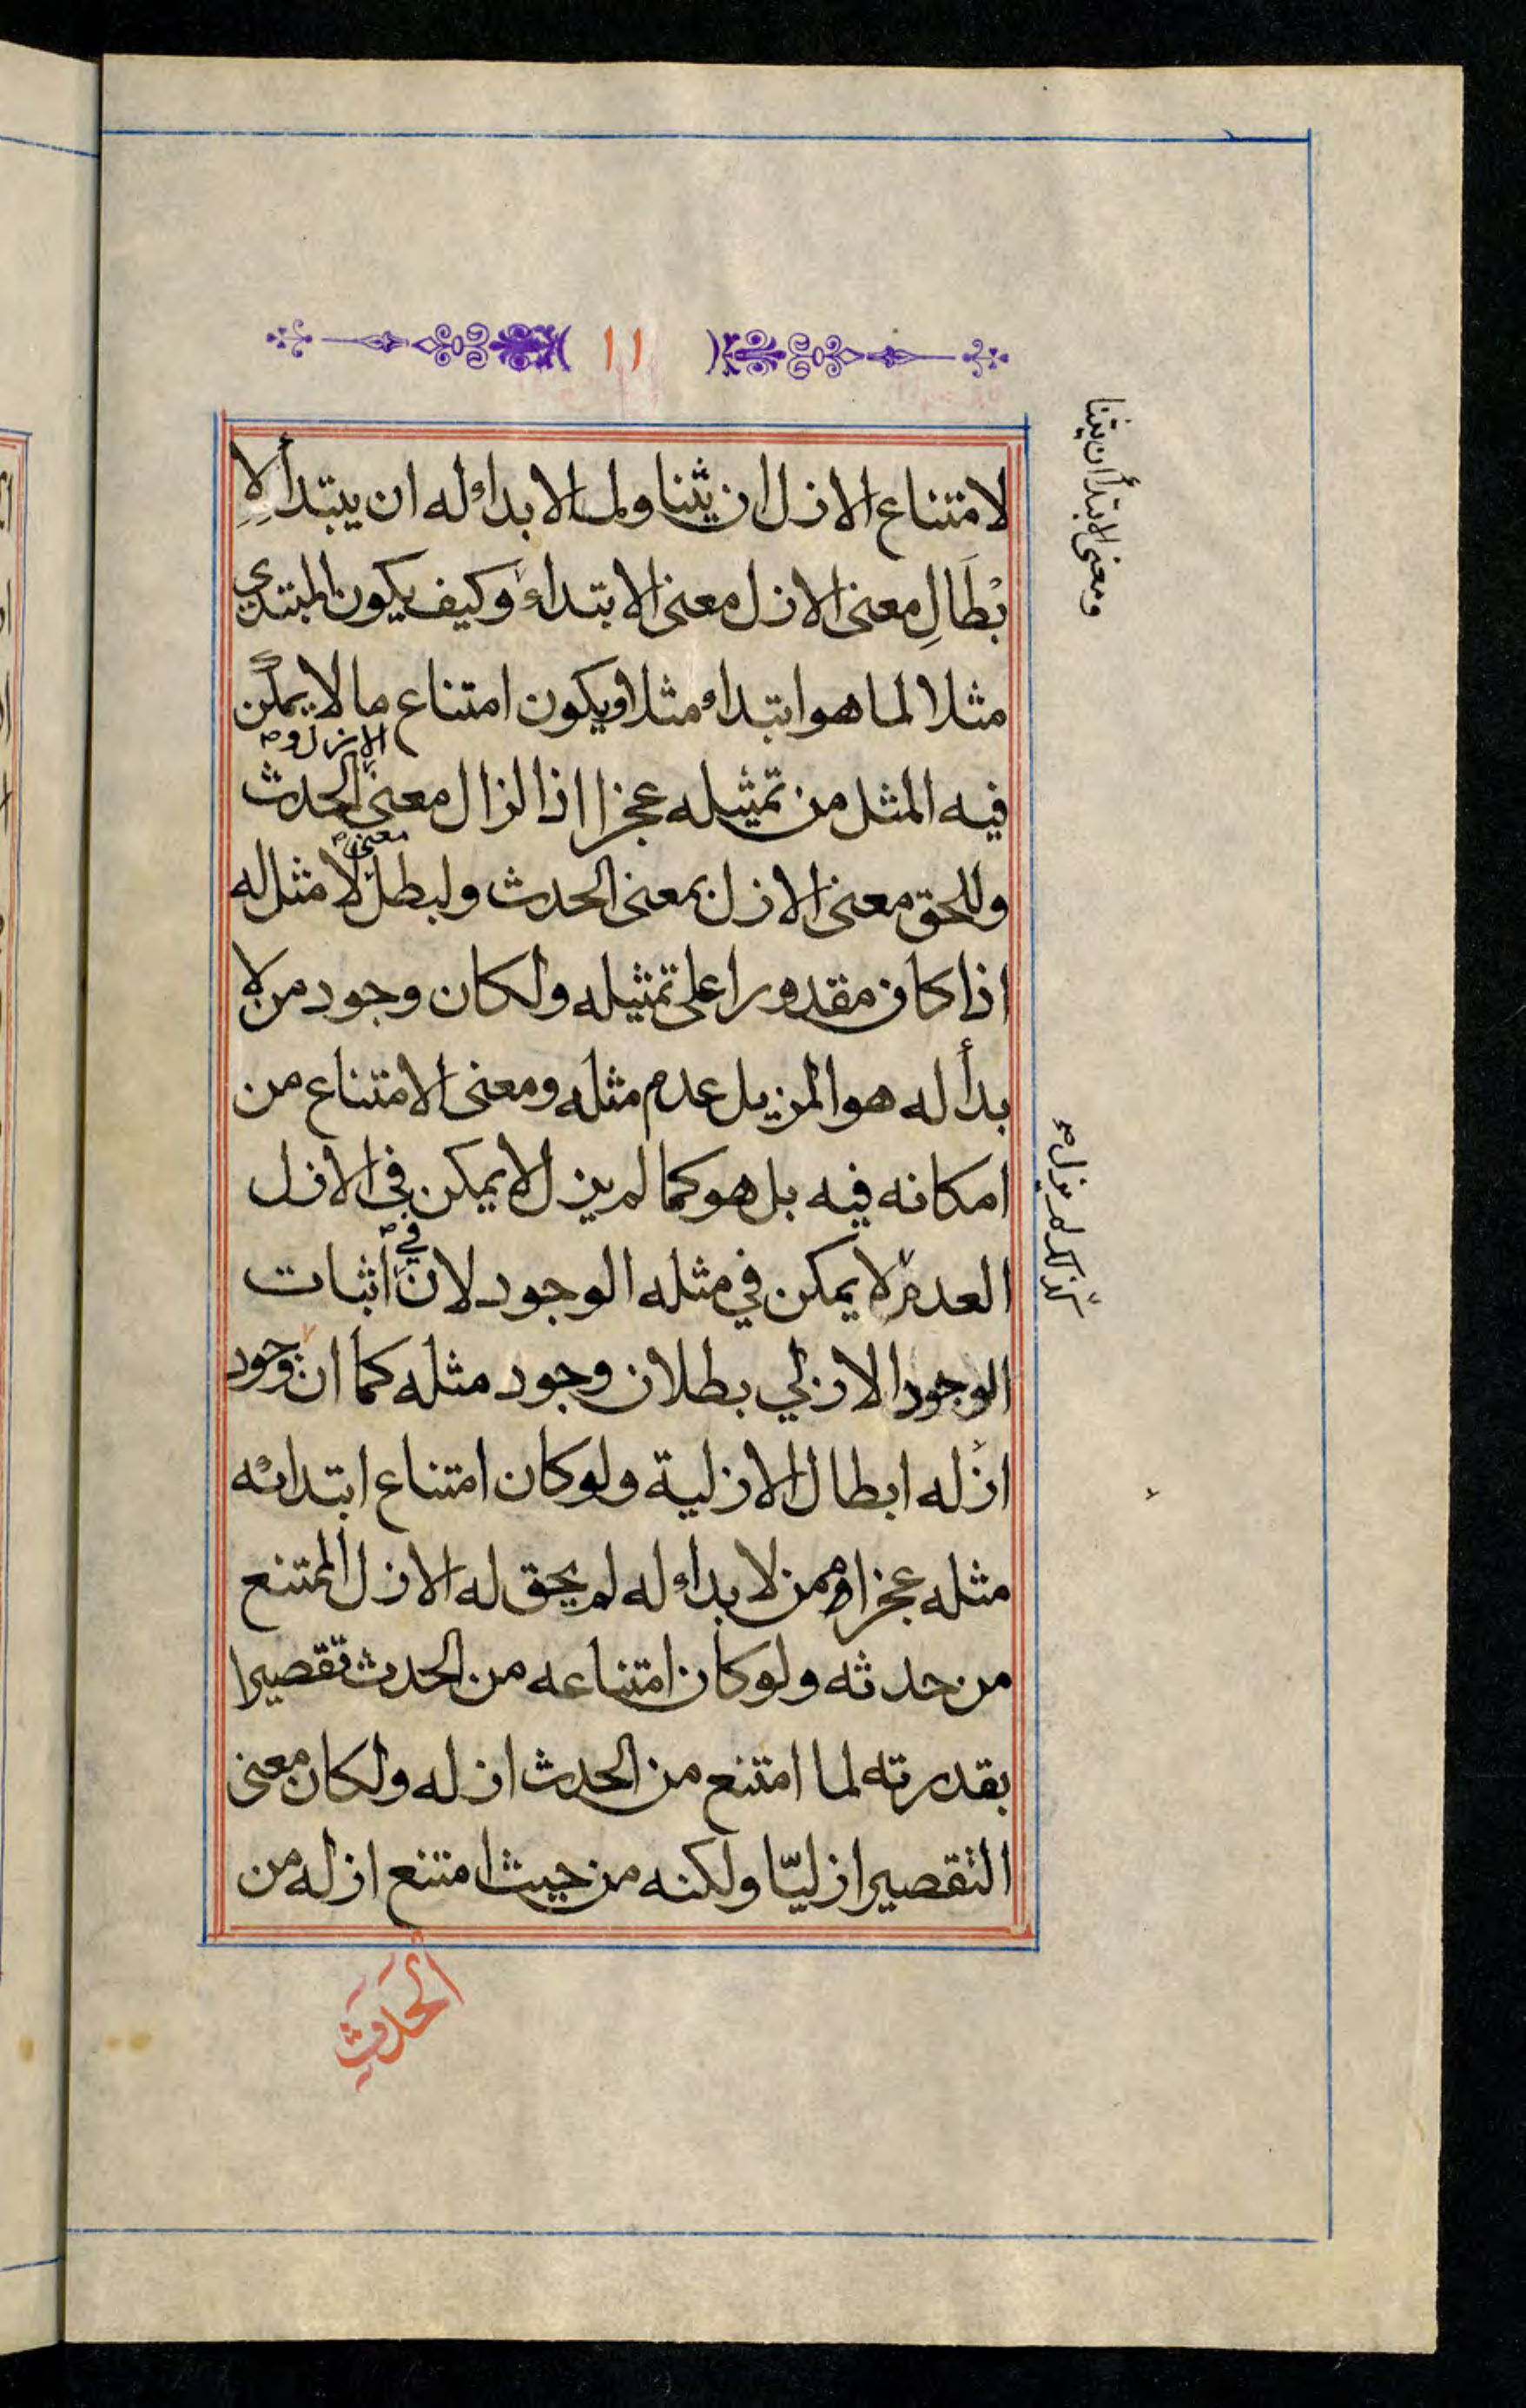 ١١
لامتناع الازل ان يثنا ولما لا بداء له ان يبتدأ لإِ
بْطَالِ معنى الازل معنى الابتداء وكيف يكون المبتدي
مثلا لما هو ابتداء مثلا ويكون امتناع ما لا يمكن
الازل و صح
فيه المثل من تمثيله عجزا اذا لزال معنى الحدث
معنى صح
وللحق معنى الازل بمعنى الحدث ولبطل لا مثل له
اذا كان مقدورا على تمثيله ولكان وجود من لا
بدأ له هو المزيل عدم مثله ومعنى الامتناع من
امكانه فيه بل هو كما لم يزل لا يمكن في الازل
في صح
العدم لا يمكن في مثله الوجود لان اثبات
الوجود الازلي بطلان وجود مثله كما ان وجود
ازله ابطال الازلية ولو كان امتناع ابتدائه
مثله عجزا ممن لا بداء له لم يحق له الازل الممتنع
من حدثه ولو كان امتناعه من الحدث تقصيرا
بقدرته لما امتنع من الحدث ازله ولكان معنى
التقصير ازليّا ولكنه من حيث امتنع ازله من
الحَدَثِ
ومعنى الابتدأ ان يثنا
كذلك لم يزل صح